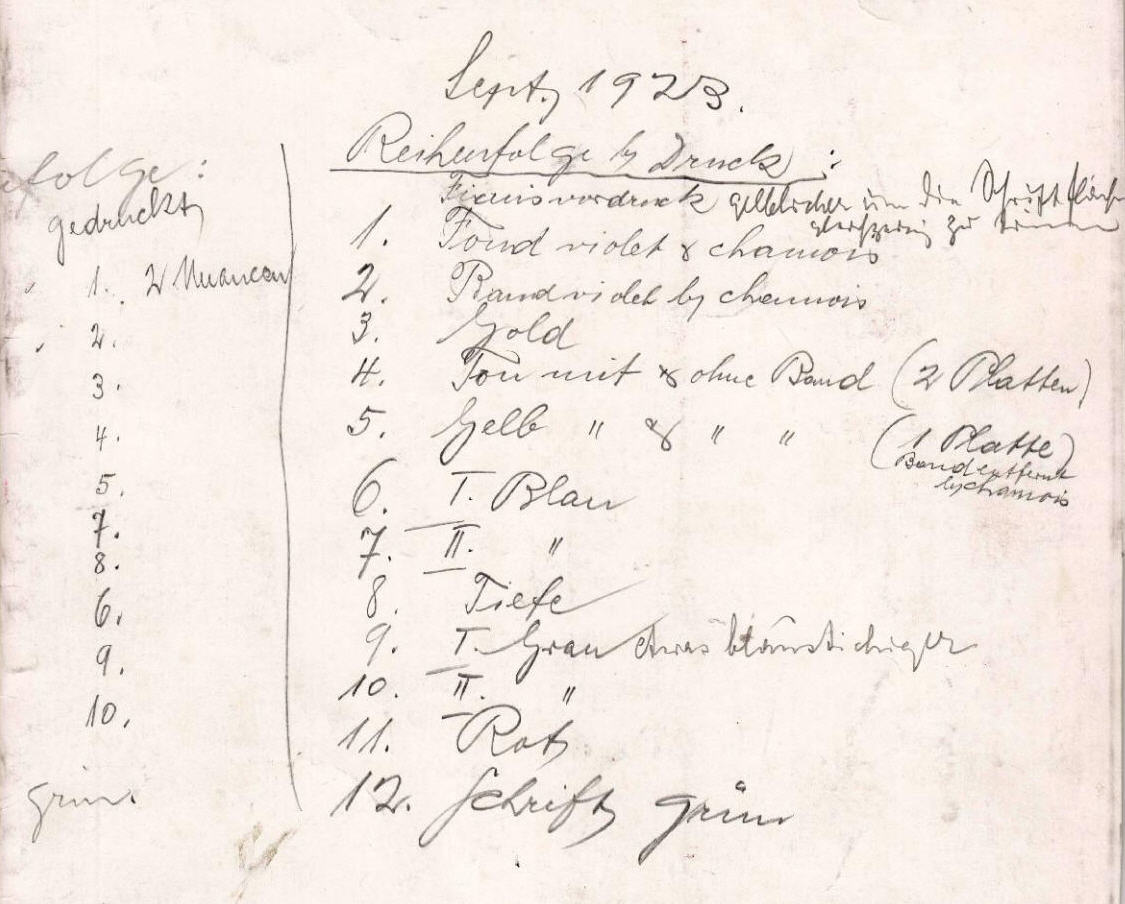 Sept. 1923.
Reihenfolge b/ Druck :
Firnisvordruck gelblicher um die Schriftfläche
gleichzeitig zu
1. Fond violet & chamois
2. Band violet b/ chamois
3. Gold
4. Ton mit & ohne Band (2 Platten)
5. Gelb " & " " (1 Platte)
Band entfernt
b/ chamois
6. I. Blau
7. II. "
8. Tiefe
9. I. Grau etwas blaustichiger
10. II. "
11. Rot
12. Schrift grün
folge :
gedruckt
1. 2 Nuancen
2.
3.
4.
5.
7.
8.
6.
9.
10.
grün.